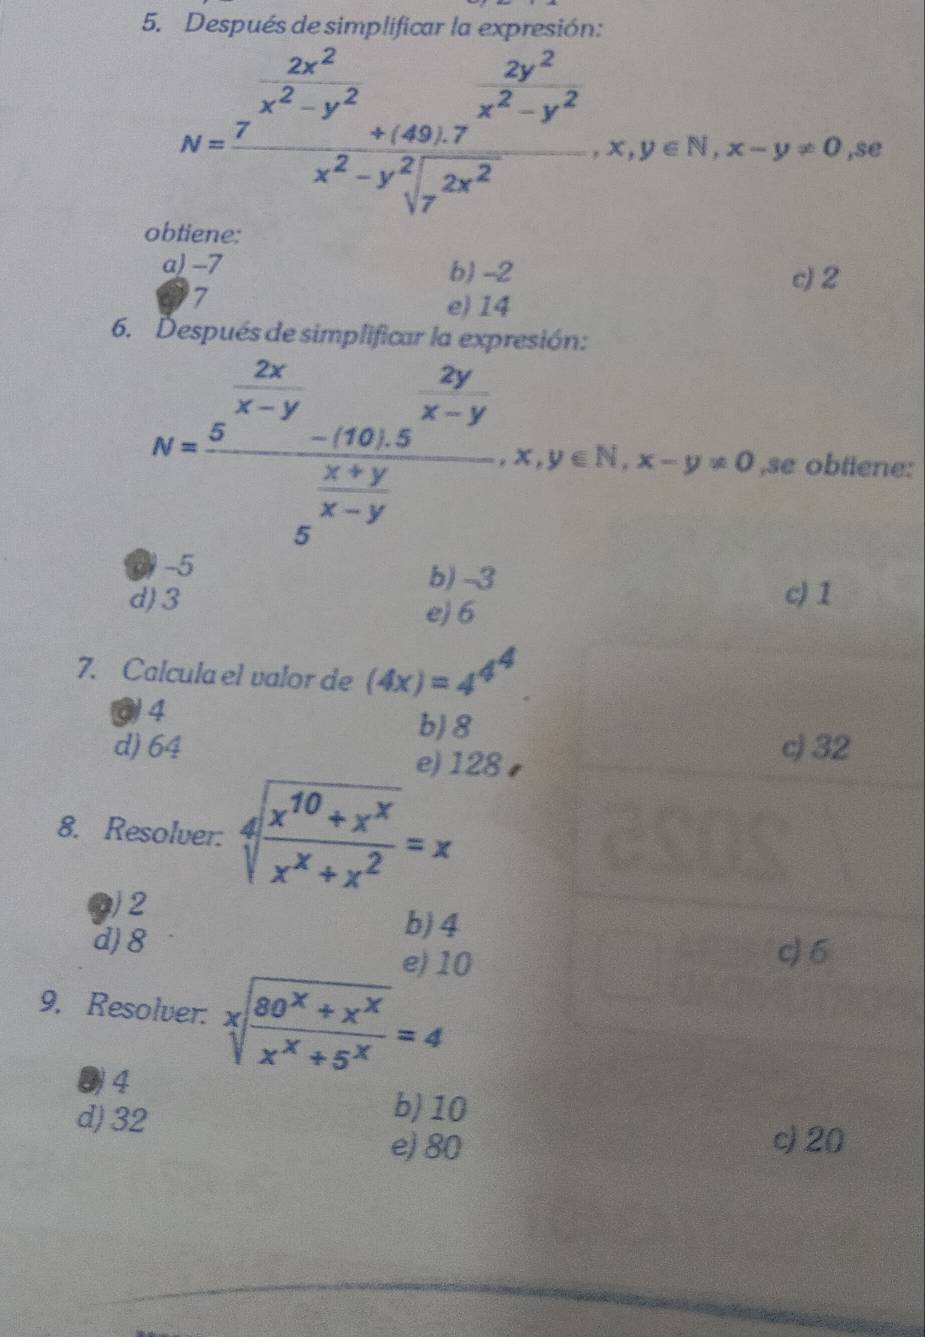 5. Después de simplificar la expresión:
N = \frac{7^{\frac{2x^2}{x^2-y^2}} + (49).7^{\frac{2y^2}{x^2-y^2}}}{\sqrt[x^2-y^2]{7^{2x^2}}}, x, y ∈ ℕ, x - y ≠ 0 ,se
obtiene:
a) -7 b) -2 c) 2
7 e) 14
6. Después de simplificar la expresión:
N = \frac{5^{\frac{2x}{x-y}} - (10).5^{\frac{2y}{x-y}}}{5^{\frac{x+y}{x-y}}}, x, y ∈ ℕ, x - y ≠ 0 ,se obtiene:
) -5 b) -3 c) 1
d) 3 e) 6
7. Calcula el valor de (4x) = 4^{4^4}.
) 4 b) 8 c) 32
d) 64 e) 128
8. Resolver: \sqrt[4]{\frac{x^{10} + x^x}{x^x + x^2}} = x
) 2 b) 4 c) 6
d) 8 e) 10
9. Resolver: \sqrt[x]{\frac{80^x + x^x}{x^x + 5^x}} = 4
) 4 b) 10 c) 20
d) 32 e) 80